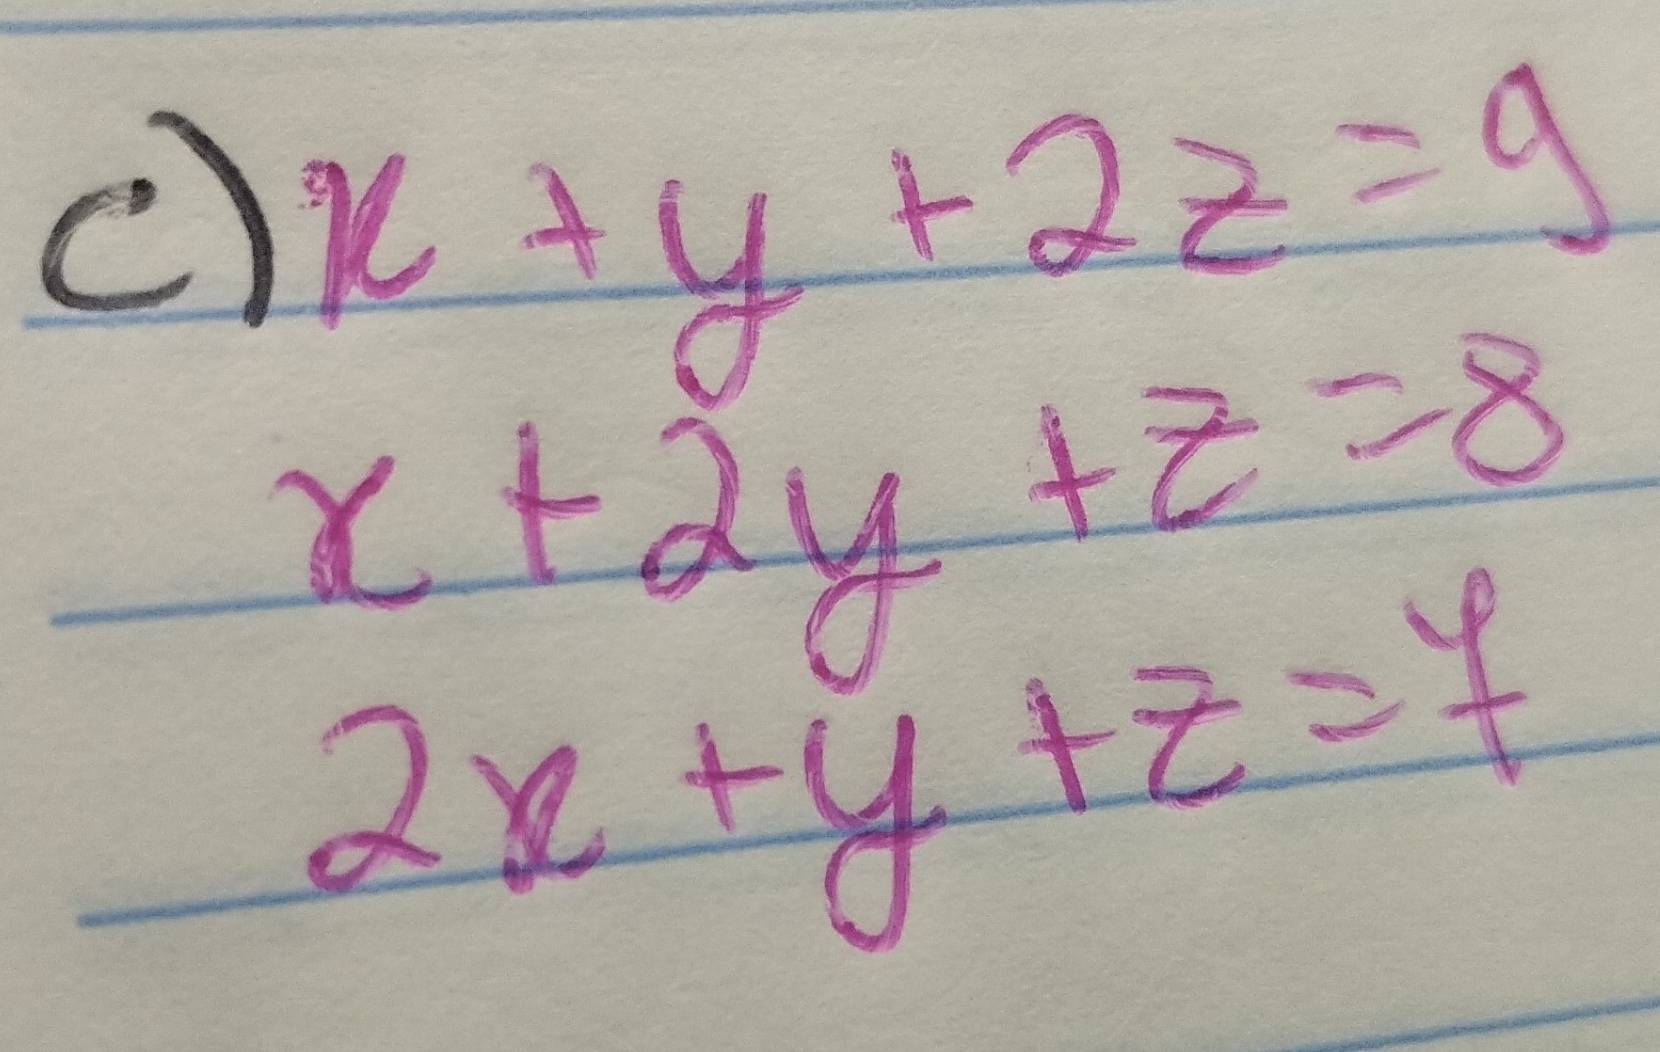 c) x + y + 2z = 9
x + 2y + z = 8
2x + y + z = 7